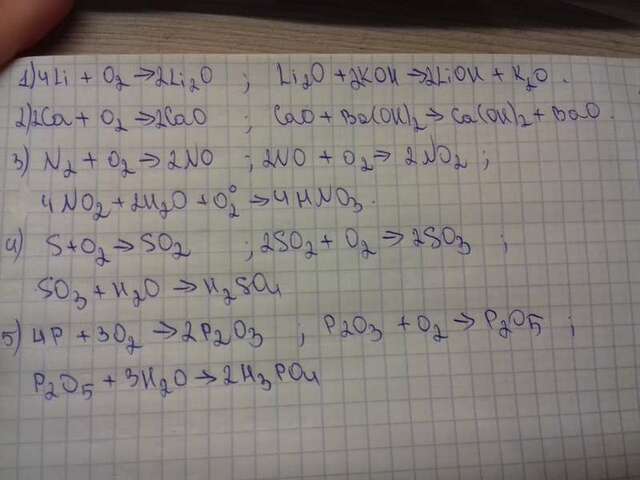 1) 4Li + O₂ → 2Li₂O ; Li₂O + 2KOH → 2LiOH + K₂O.
2) 2Ca + O₂ → 2CaO ; CaO + Ba(OH)₂ → Ca(OH)₂ + BaO.
3) N₂ + O₂ → 2NO ; 2NO + O₂ → 2NO₂ ;
4NO₂ + 2H₂O + O₂ → 4HNO₃.
4) S + O₂ → SO₂ ; 2SO₂ + O₂ → 2SO₃ ;
SO₃ + H₂O → H₂SO₄
5) 4P + 3O₂ → 2P₂O₃ ; P₂O₃ + O₂ → P₂O₅ ;
P₂O₅ + 3H₂O → 2H₃PO₄